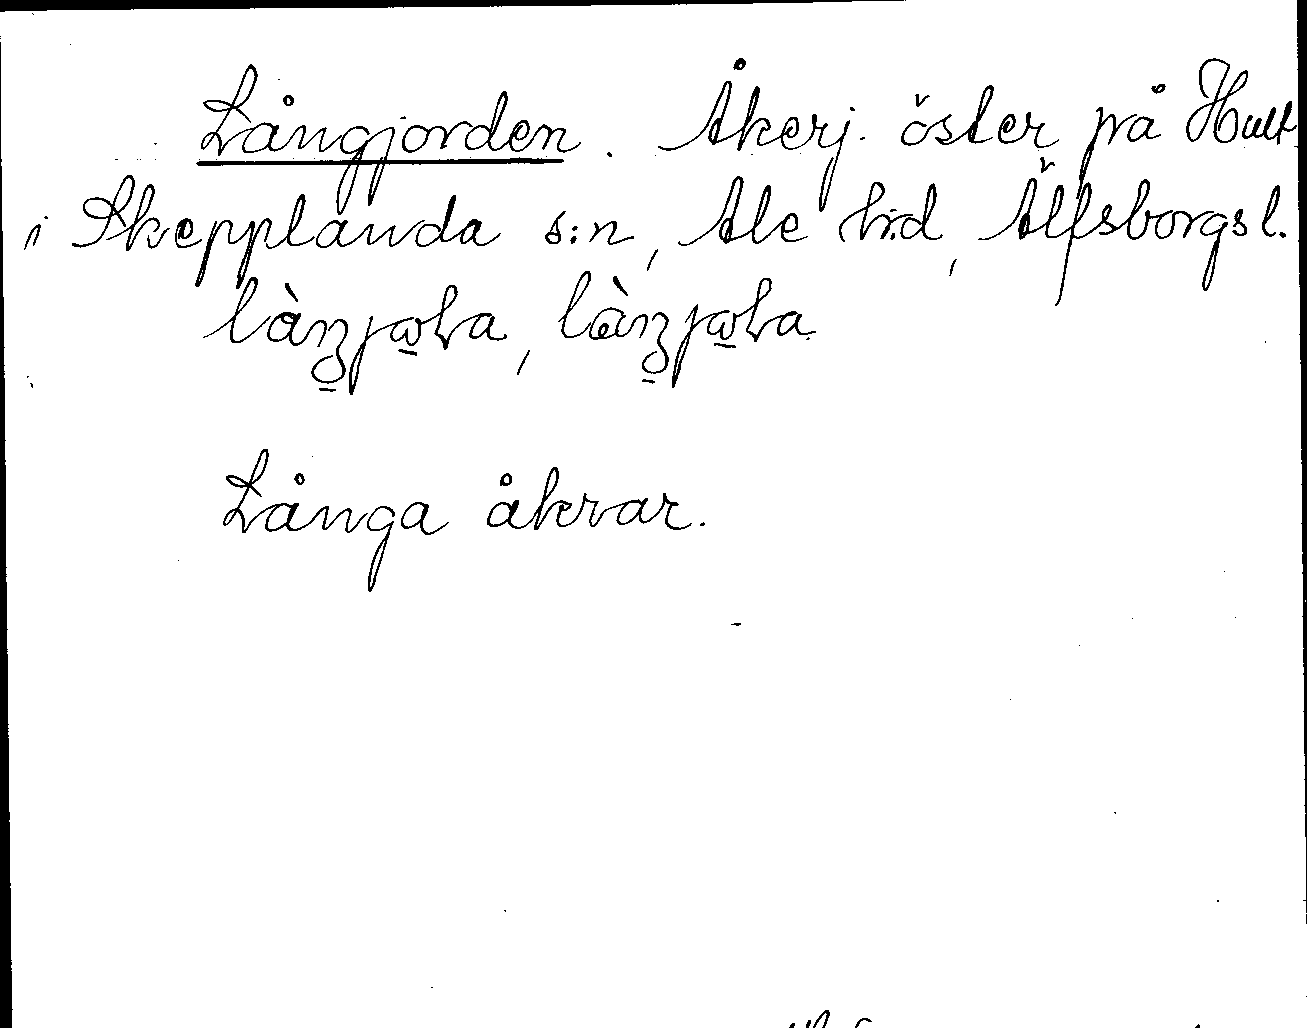 Långjorden. Åkerj. öster på Hult
i Skepplanda s:n, Ale h:d, Älfsborgs l.
Långa åkrar.